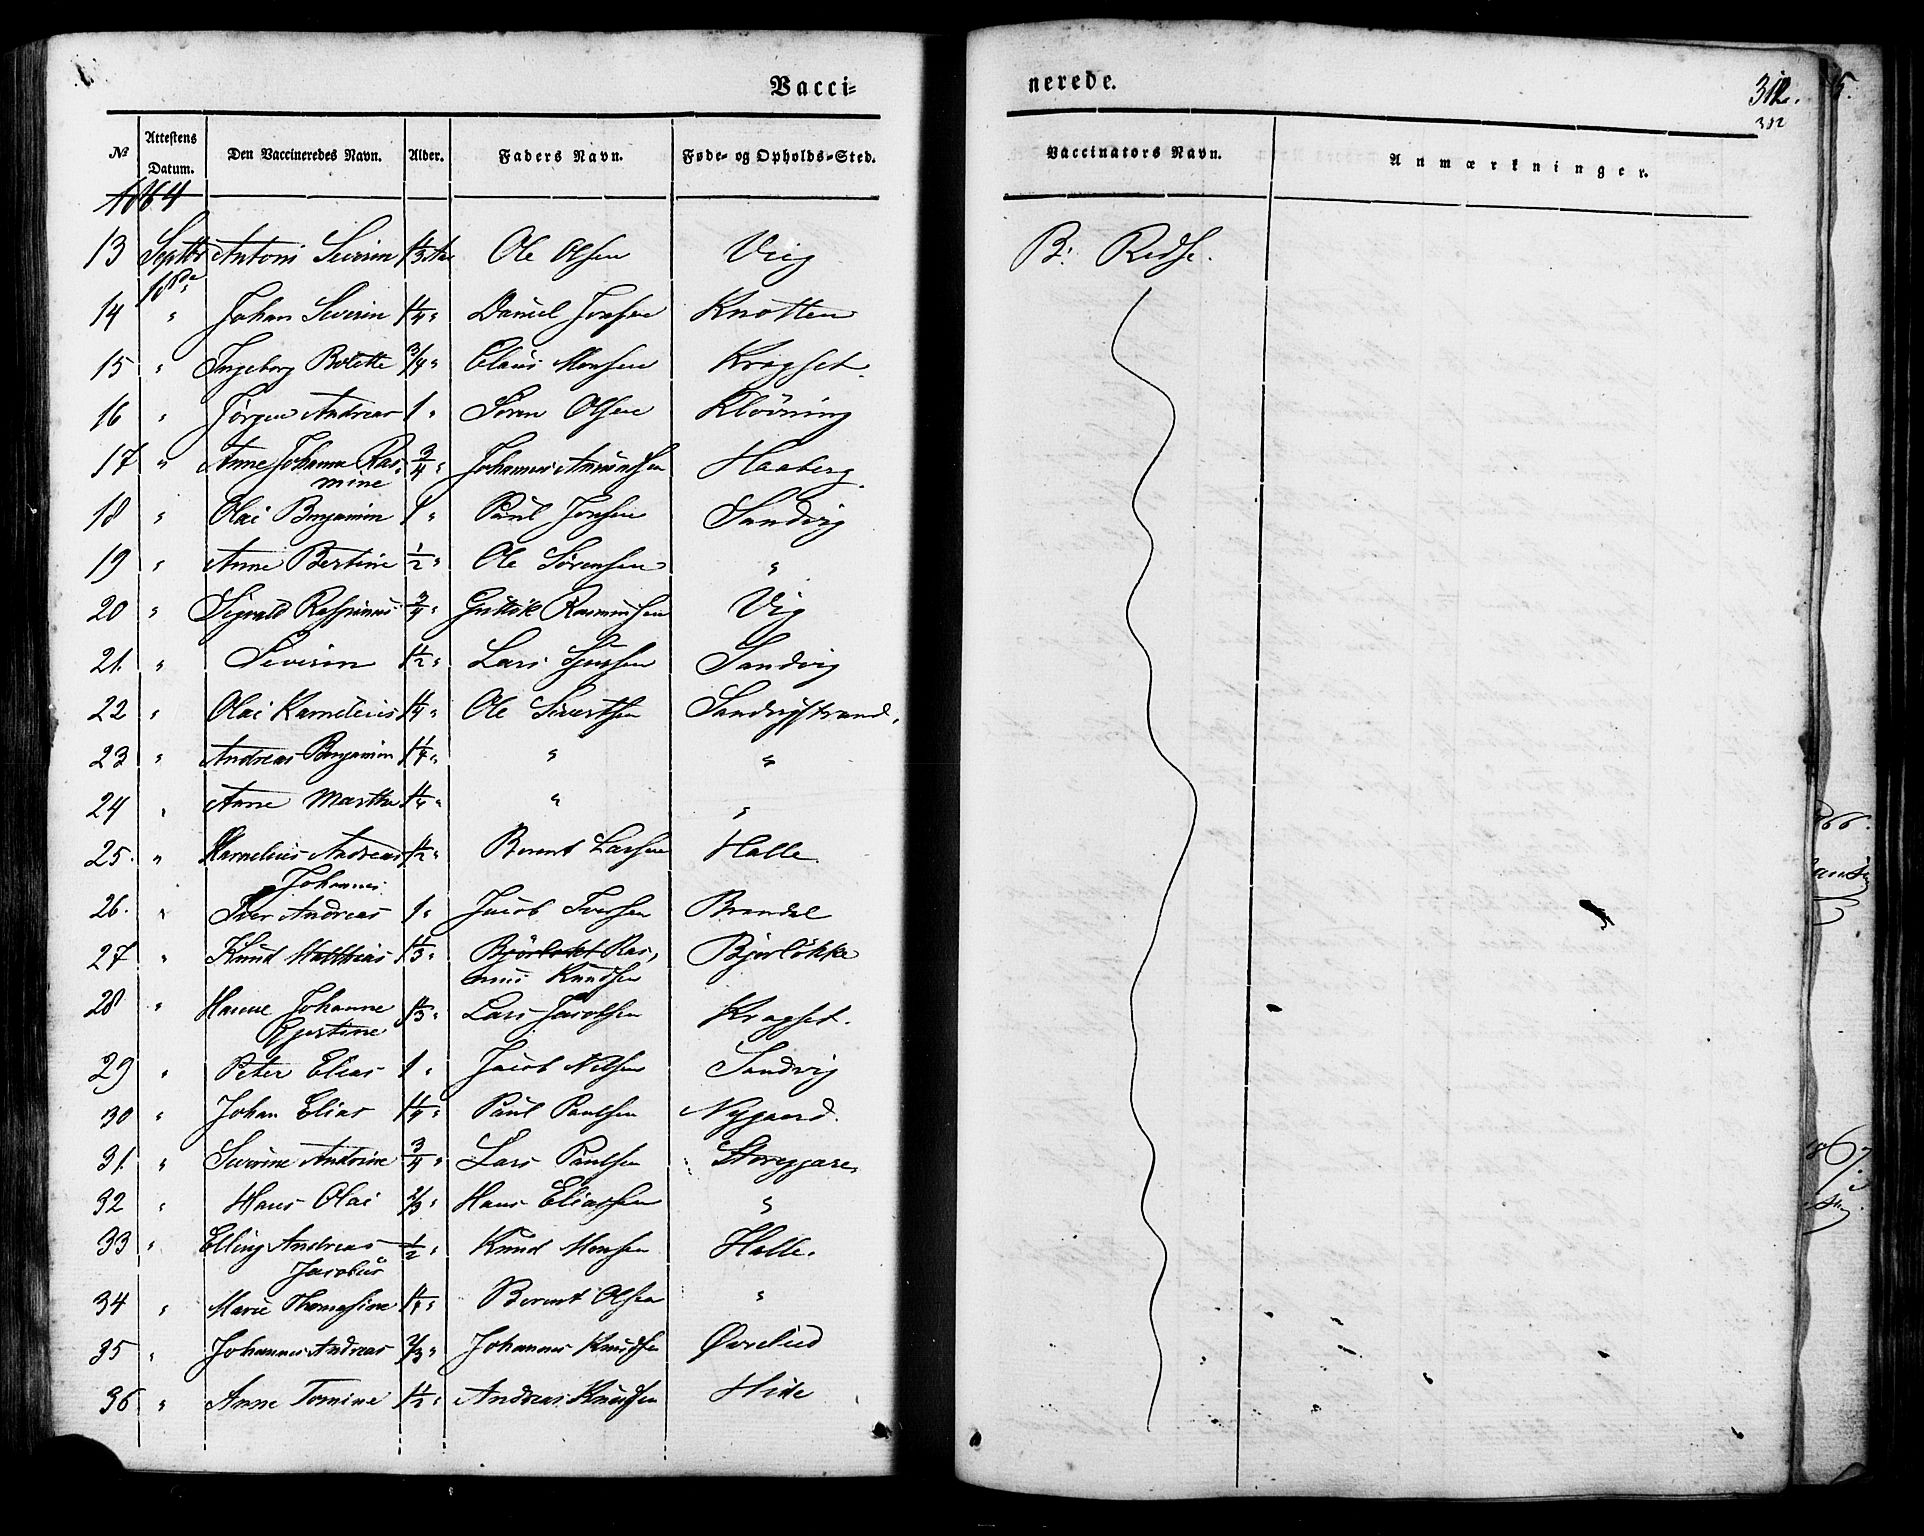 Vacci-
nerede.
312.
312
№ Attestens Datum. Den Vaccineredes Navn. Alder. Faders Navn. Føde- og Opholds-Sted. Vaccinators Navn. Anmærkninger.
1864
13 Septbr 18de Antoni Severin 1 1/3 Aar Ole Olsen Vig B: Redse.
14 " Johan Severin 1 1/4 " Daniel Jonsen Knotten
15 " Ingeborg Bolette 3/4 " Claus Monsen Kragset.
16 " Jørgen Andreas 1 " Søren Olsen Kløvning
17 " Anne Johanne Rasmine 3/4 " Johannes Amundsen Haaberg.
18 " Olai Benjamin 1 " Paul Jonsen Sandvig
19 " Anne Bertine 1/2 " Ole Sørensen "
20 " Sigvald Rasmus 3/4 " Guttik Rasmussen Vig
21. " Severin 1 1/2 " Lars Sjursen Sandvig
22 " Olai Kornelius 1 1/4 " Ole Sivertsen Sandvigstrand.
23 " Andreas Benjamin 1 1/4 " " "
24 " Anne Marthe 1 1/4 " " "
25. " Kornelius Andreas Johannes 1 1/2 " Berent Larsen Halle
26. " Iver Andreas 1 " Jacob Iversen Brandal
27 " Knud Matthias 1 1/3 " Bjørløkk Rasmus Knudsen Bjørløkke
28 " Hanne Johanne Gjertine 1 1/3 " Lars Jacobsen Kragset.
29 " Peter Elias 1 " Jacob Nilsen Sandvig
30 " Johan Elias 1 1/4 " Paul Paulsen Nygaard.
31. " Severine Antonine 3/4 " Lars Paulsen Storegjære
32 " Hans Olai 2/3 " Hans Eliassen "
33 " Elling Andreas Jacobus 1/2 " Knud Monsen Halle.
34 " Marie Thomasine 1 1/4 " Berent Olsen "
35 " Johannes Andreas 2/3 " Johannes Knudsen Øvrelied
36 " Anne Tomine 1 1/2 " Andreas Knudsen Hide